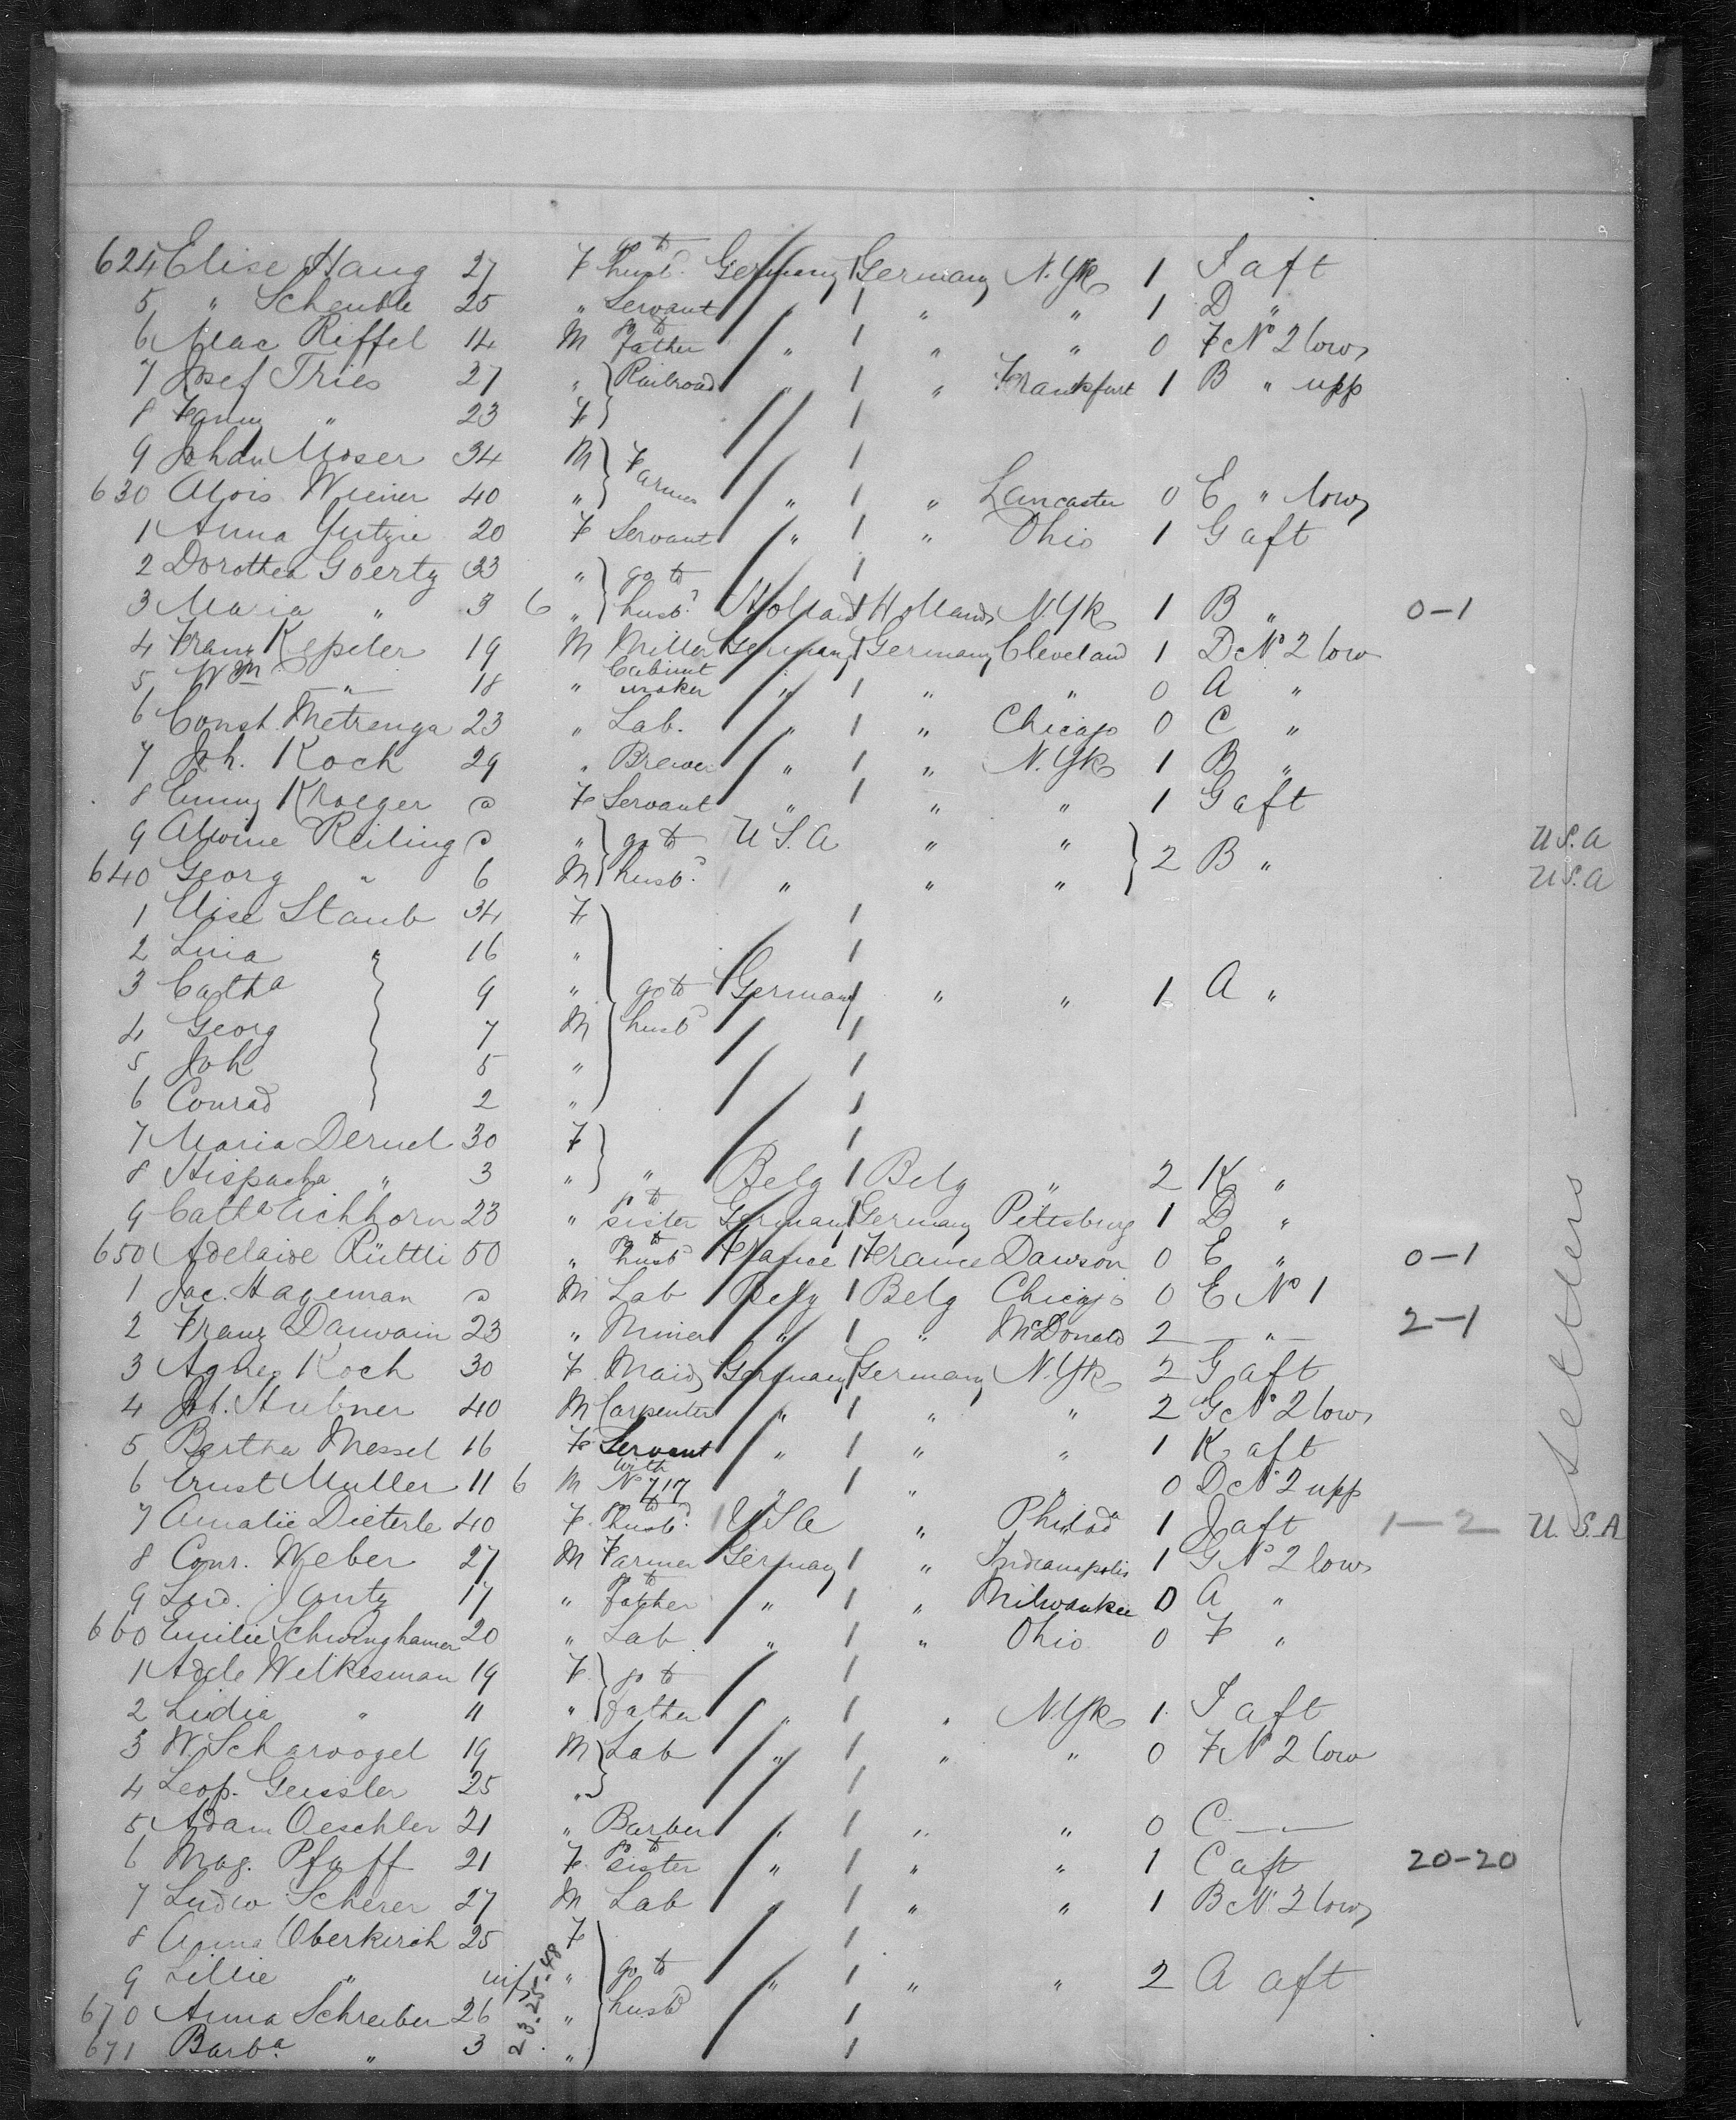 624 Elise Haug 27 F go to husbd. Germany Germany N.Yk 1 I aft
5 " Scheuble 25 " Servant " " 1 D "
6 Mac Riffel 14 M go to father " " " 0 F No 2 low
7 Josef Tries 27 " Railroad " " Frankfurt 1 B " upp
8 Fanny " 23 F
9 Johan Moser 34 M Farmer
630 Alois Wiener 40 " " " Lancaster 0 E " low
1 Anna Yutzie 20 F Servant " " Ohio 1 G aft
2 Dorothea Goertz 33 " go to
3 Maria " 3 6 " husbd Holland Holland N.Yk 1 B " 0-1
4 Franz Kepeler 19 M Miller Germany Germany Cleveland 1 D No 2 low
5 Wm " 18 " Cabinet maker " " " 0 A "
6 Const. Metrenga 23 " Lab. " " Chicago 0 C "
7 Joh. Koch 29 " Brewer " " N.Yk 1 B "
8 Emmy Kroeger F Servant " " " 1 G aft
9 Alwine Reiling " go to U.S.A " " 2 B " U.S.A
640 Georg " 6 M husbd " " " U.S.A
1 Elise Staub 34 F
2 Lina " 16 "
3 Catha 9 " go to Germany " " 1 A "
4 Georg 7 M husbd
5 Joh 5 "
6 Conrad 2 "
7 Maria Deruel 30 F
8 " 3 " " Belg Belg " 2 K "
9 Catha Eichhorn 23 " go to sister Germany Germany Pittsburg 1 D "
650 Adelaide Rüttli 50 " go to husbd France France Dawson 0 E " 0-1
1 Jac. Hageman M Lab Belg Belg Chicago 0 E No 1
2 Franz Dauvain 23 " Miner " " McDonald 2 " 2-1
3 Agnes Koch 30 F Maid Germany Germany N.Yk 2 G aft
4 Joh. Hubner 40 M Carpenter " " " 2 G No 2 low
5 Bertha Messel 16 F Servant " " " 1 K aft
6 Ernst Muller 11 6 M with No 717 " " " 0 D No 2 upp
7 Amalie Dieterle 40 F to husbd. U.S.A " Philada 1 J aft 1-2 U.S.A
8 Conr. Weber 27 M Farmer Germany " Indianapolis 1 G No 2 low
9 Lud. Jantz 17 " go to father " " Milwaukee 0 A "
660 Emilie Schwinghamer 20 " Lab " " Ohio 0 F "
1 Adele Welkesman 19 F go to
2 Lidia " 11 " father " " N.Yk 1 I aft
3 W. Scharvogel 19 M Lab " " " 0 F No 2 low
4 Leop. Geissler 25 "
5 Adam Oeschler 21 " Barber " " " 0 C "
6 Mag. Pfaff 21 F go to sister " " " 1 C aft 20-20
7 Ludw Scherer 27 M Lab " " " 1 B No 2 low
8 Anna Oberkirch 25 F
9 Lillie " inf " go to " " " 2 A aft
670 Anna Schreiber 26 " husbd
671 Barba. " 3 "
23.25.48
Settlers